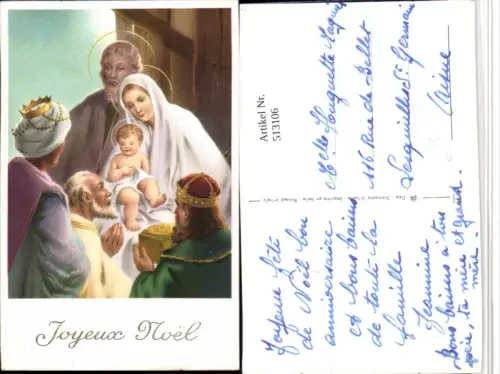 Joyeux Noël
Artikel Nr.
513106
Melle Huguette
116 Rue de Bellet
Lesquielles St Germain
Aisne
Joyeuse fête
de Noël bon
anniversaire
et bons baisers
de toute la
famille
Jeannine
Bons baisers à ton
père, ta mère et grand.
mère.